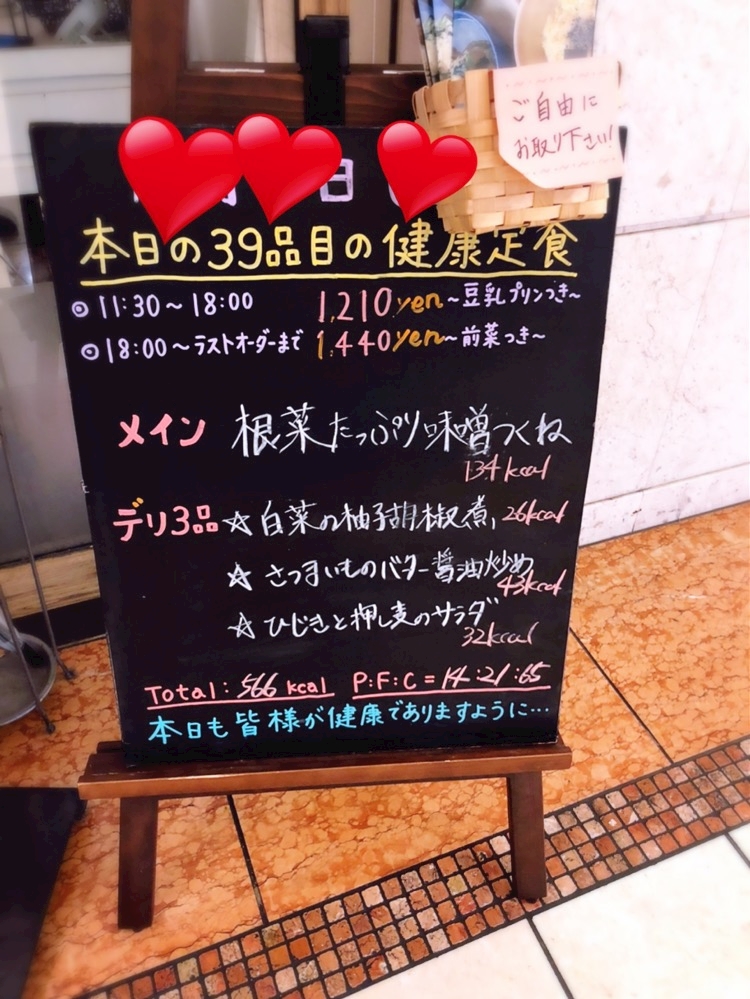 ご自由に
お取り下さい!
日
本日の39品目の健康定食
◎11:30～18:00 1,210yen～豆乳プリンつき～
◎18:00～ラストオーダーまで 1,440yen～前菜つき～
メイン 根菜たっぷり味噌つくね
134kcal
デリ3品 ☆白菜の柚子胡椒煮, 26kcal
☆さつまいものバター醤油炒め
43kcal
☆ひじきと押し麦のサラダ
32kcal
Total: 566 kcal P:F:C=14:21:65
本日も皆様が健康でありますように…